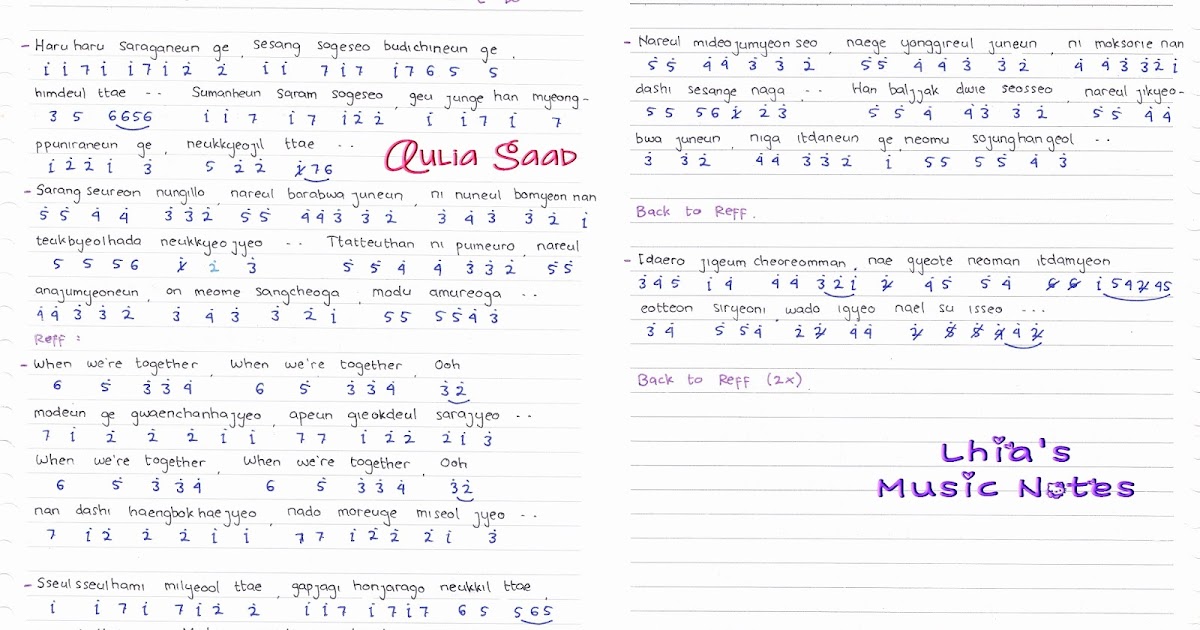 - Haru haru saraganeun ge, sesang sogeseo budichineun ge,
1 1 7 1 1 7 1 2 2 1 1 7 1 7 1 7 6 5 5
himdeul ttae -- Sumanheun saram sogeseo, geu junge han myeong-
3 5 6656 1 1 7 1 7 1 2 2 1 1 7 1 7
ppuniraneun ge, neukkyeojil ttae --
1 2 2 1 3 5 2 2 176
Aulia Saad
- Sarang seureon nungillo, nareul barabwa juneun, ni nuneul bomyeon nan
5 5 4 4 3 3 2 5 5 4 4 3 3 2 3 4 3 3 2 1
teukbyeolhada neukkyeojyeo -- Ttatteuthan ni pumeuro, nareul
5 5 5 6 1 2 3 5 5 4 4 3 3 2 5 5
anajumyeoneun, on meome sangcheoga, modu amureoga --
4 4 3 3 2 3 4 3 3 2 1 5 5 5 5 4 3
Reff :
- When we're together, When we're together, Ooh
6 5 3 3 4 6 5 3 3 4 3 2
modeun ge gwaenchanhajyeo, apeun gieokdeul sarajyeo --
7 1 2 2 2 1 1 7 7 1 2 2 2 1 3
When we're together, When we're together, Ooh
6 5 3 3 4 6 5 3 3 4 3 2
nan dashi haengbokhaejyeo, nado moreuge miseol jyeo --
7 1 2 2 2 1 1 7 7 1 2 2 2 1 3
- Sseulsseulhami milyeool ttae, gapjagi honjarago neukkil ttae,
1 1 7 1 7 1 2 2 1 1 7 1 7 1 7 6 5 565
- Nareul mideojumyeon seo, naege yonggireul juneun, ni moksorie nan
5 5 4 4 3 3 2 5 5 4 4 3 3 2 4 4 3 3 2 1
dashi sesange naga -- Han baljjak dwie seosseo, nareul jikyeo-
5 5 5 6 1 2 3 5 5 4 4 3 3 2 5 5 4 4
bwa juneun, niga itdaneun ge neomu sojunghan geol --
3 3 2 4 4 3 3 2 1 5 5 5 5 4 3
Back to Reff.
- Idaero jigeum cheoreomman, nae gyeote neoman itdamyeon
3 4 5 1 4 4 4 3 2 1 2 4 5 5 4 6 6 1 5 4 2 4 5
eotteon siryeoni, wado igyeo nael su isseo ---
3 4 5 5 4 2 2 4 4
Back to Reff (2x)
Lhia's
Music Notes